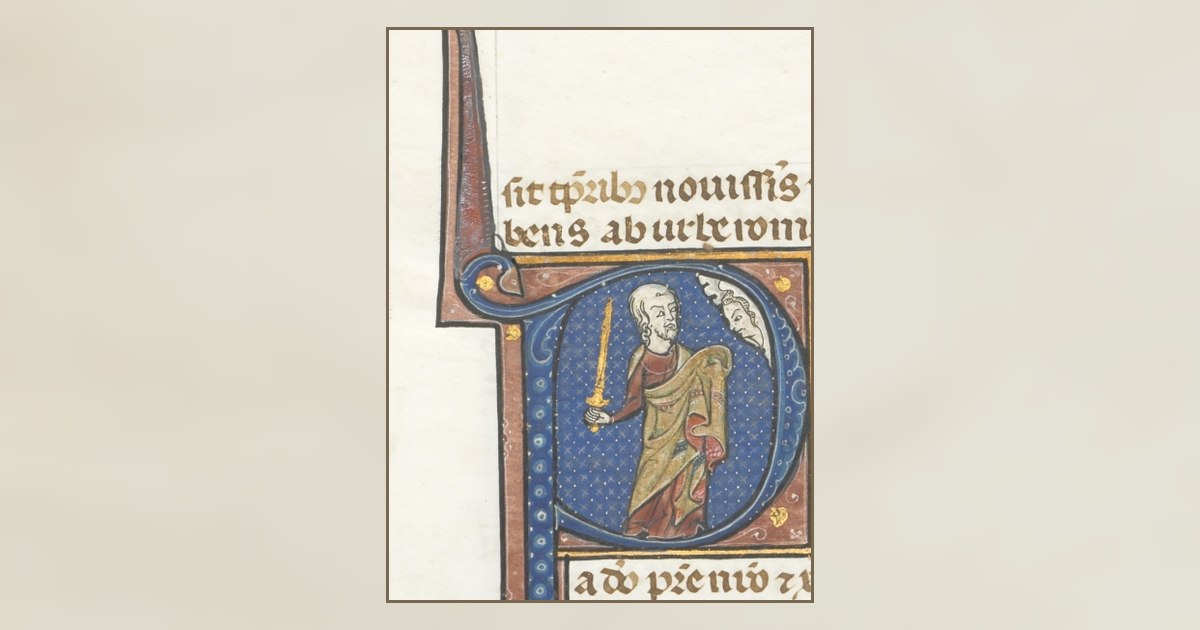 sit tp̄ribȝ nouissīs
bens ab urbe rom
P
a dō pr̄e nr̄o ⁊ x